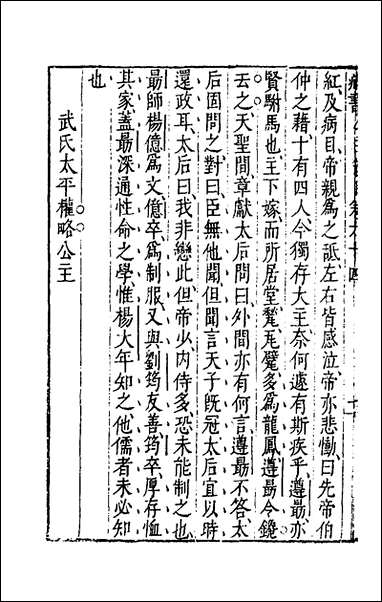 紅及病目帝親爲之䑛左右皆感泣帝亦悲慟曰先帝伯
仲之藉十有四人今獨存大主奈何遽有斯疾乎遵勗亦
賢駙馬也主下嫁而所居堂甃瓦甓多爲龍鳳遵勗令鐫
去之天聖間章獻太后問曰外間亦有何言遵勗不答太
后固問之對曰臣無他聞但聞言天子旣冠太后宜以時
還政耳太后曰我非戀此但帝少内侍多恐未能制之也
勗師楊億爲文億卒爲制服又與劉筠友善筠卒厚存恤
其家蓋最深通性命之學惟楊大年知之他儒者未必知
也
武氏太平權略公主